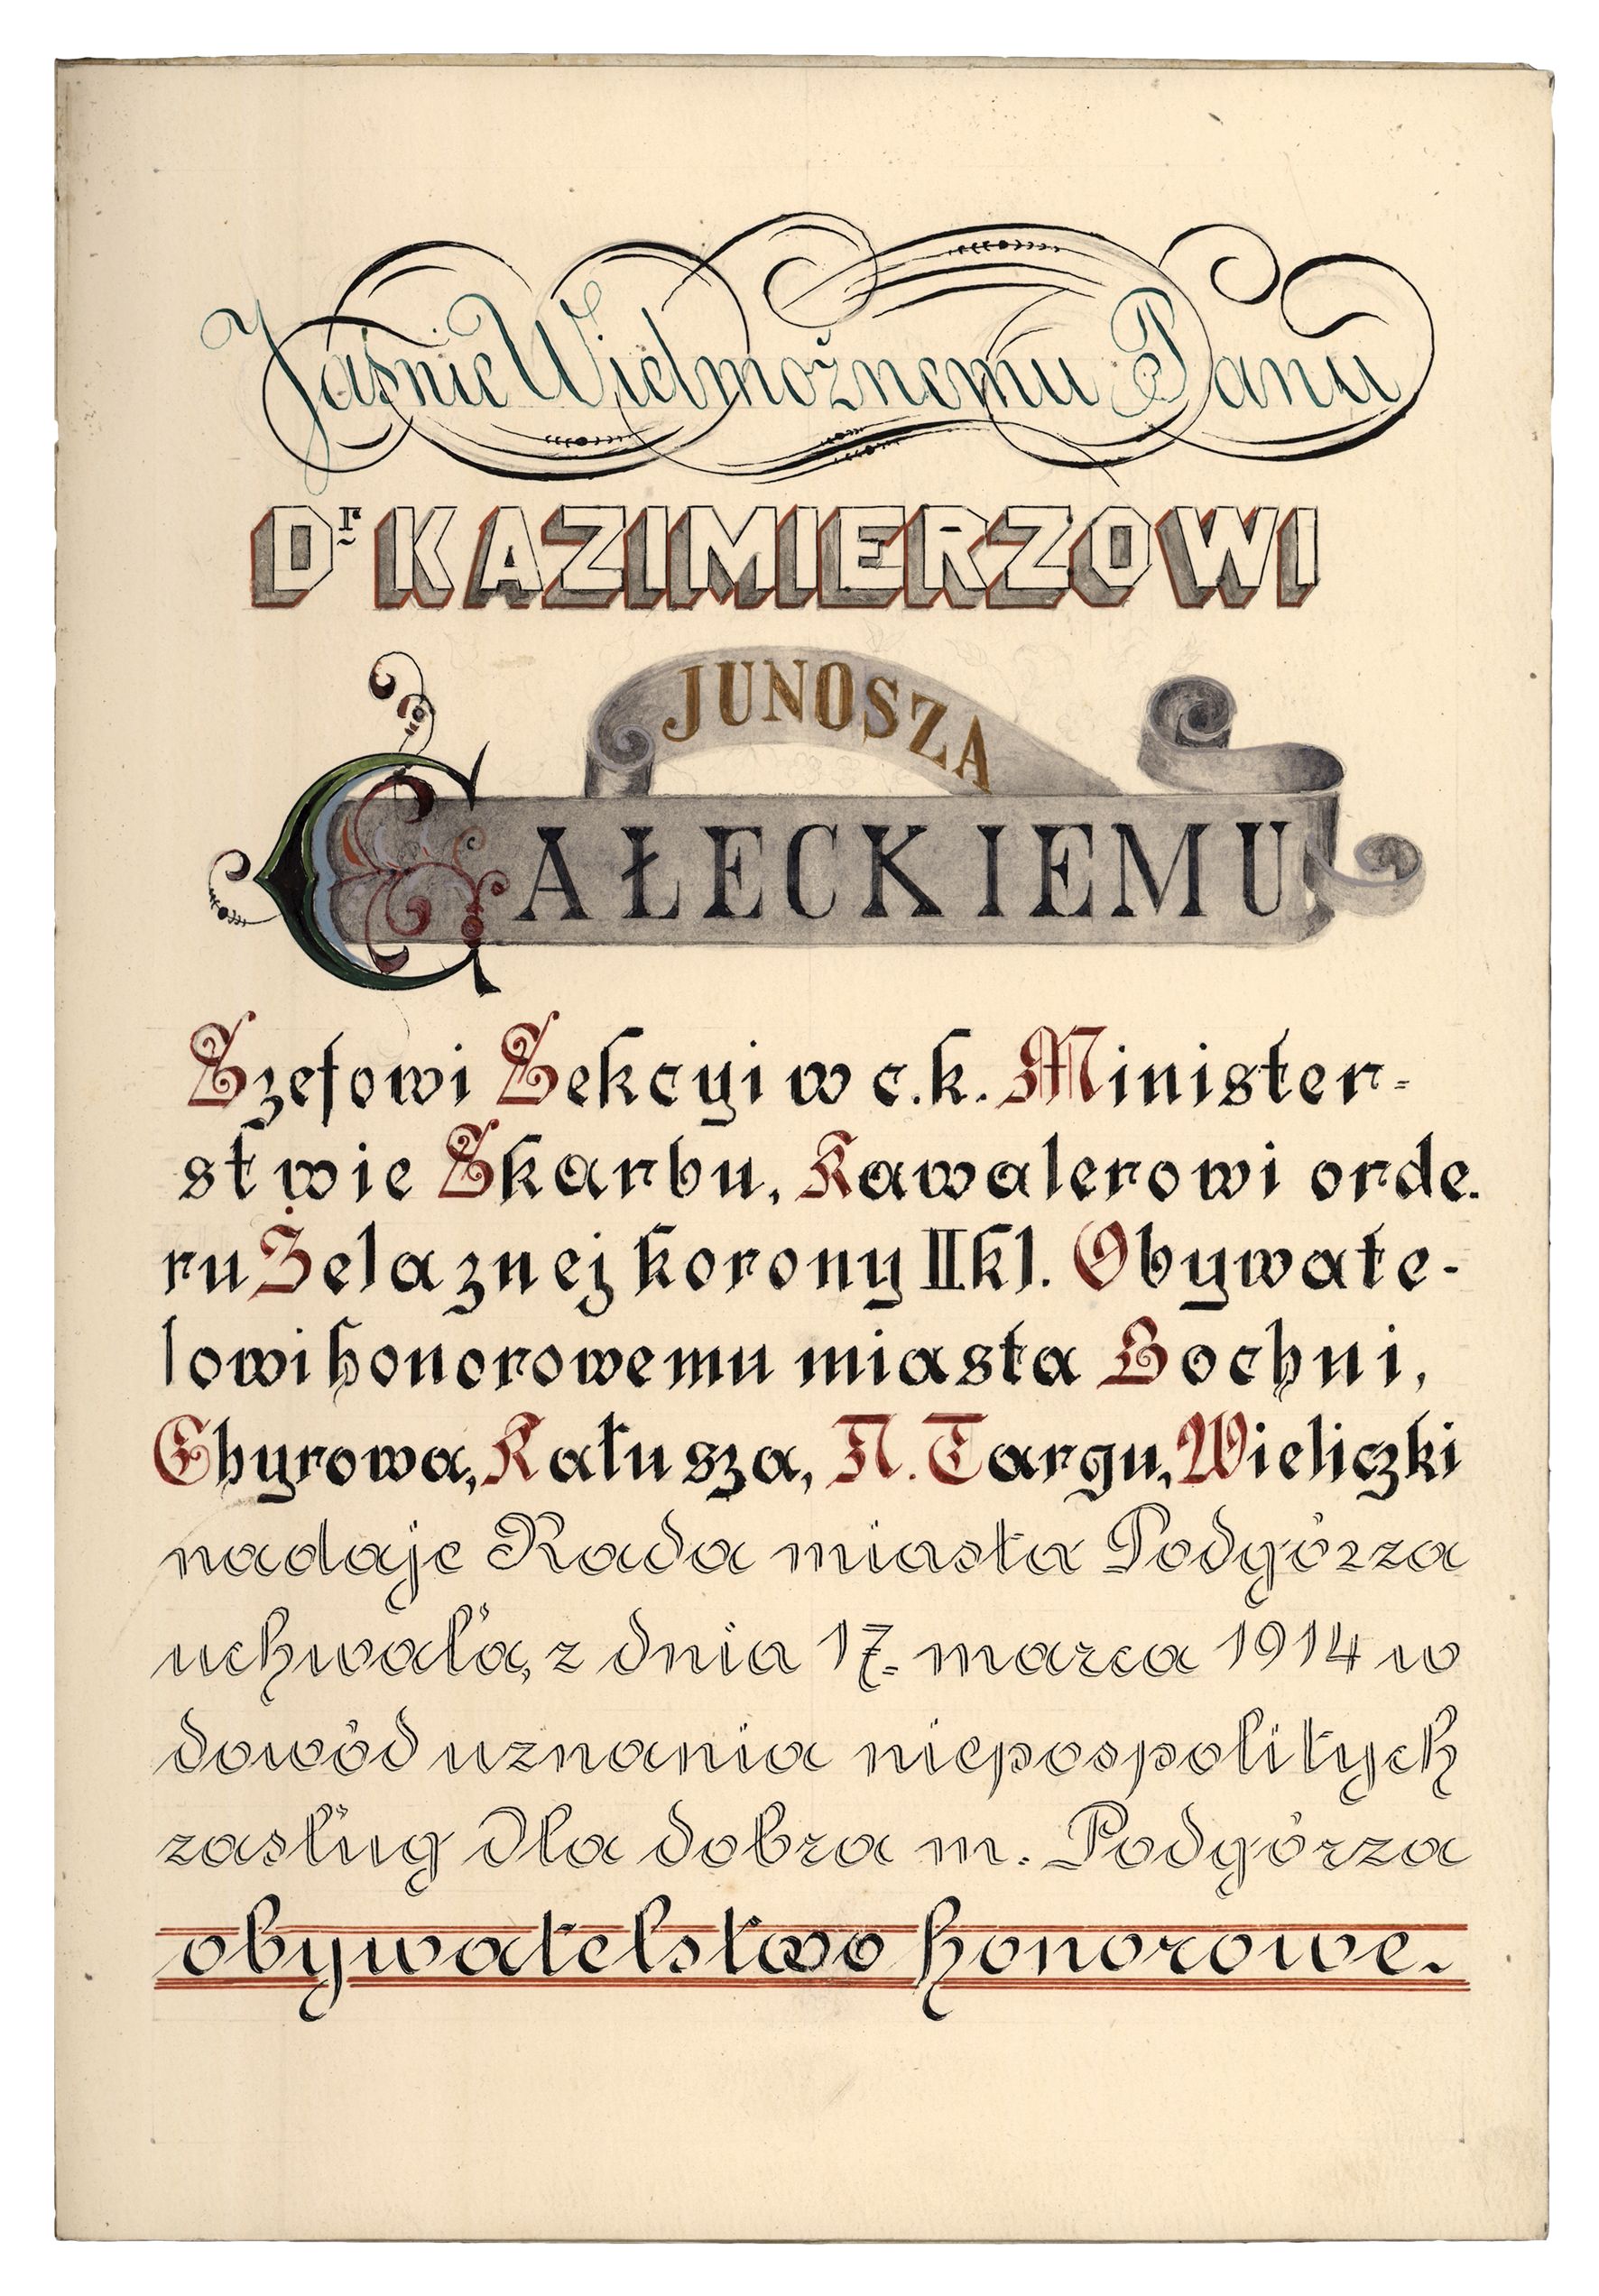 Jaśnie Wielmożnemu Panu
Dr KAZIMIERZOWI
JUNOSZA
GAŁECKIEMU
Szefowi Sekcyi w c. k. Minister-
stwie Skarbu, Kawalerowi orde.
ru Żelaznej korony II kl. Obywate-
lowi honorowemu miasta Bochni,
Chyrowa, Kałusza, N. Targu, Wieliczki
nadaje Rada miasta Podgórza
uchwałą, z dnia 17. marca 1914 w
dowód uznania niepospolitych
zasług dla dobra m. Podgórza
obywatelstwo honorowe.